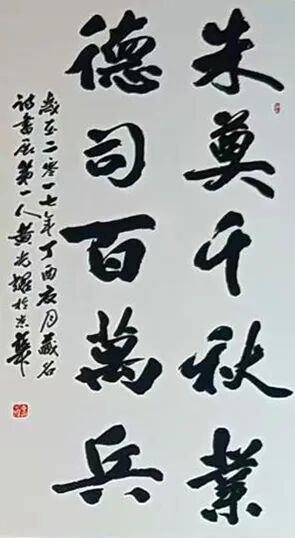 朱莫千秋業
德司百萬兵
歲在二零一七年丁酉夜月藏名
詩書展第一人黄光耀於京華